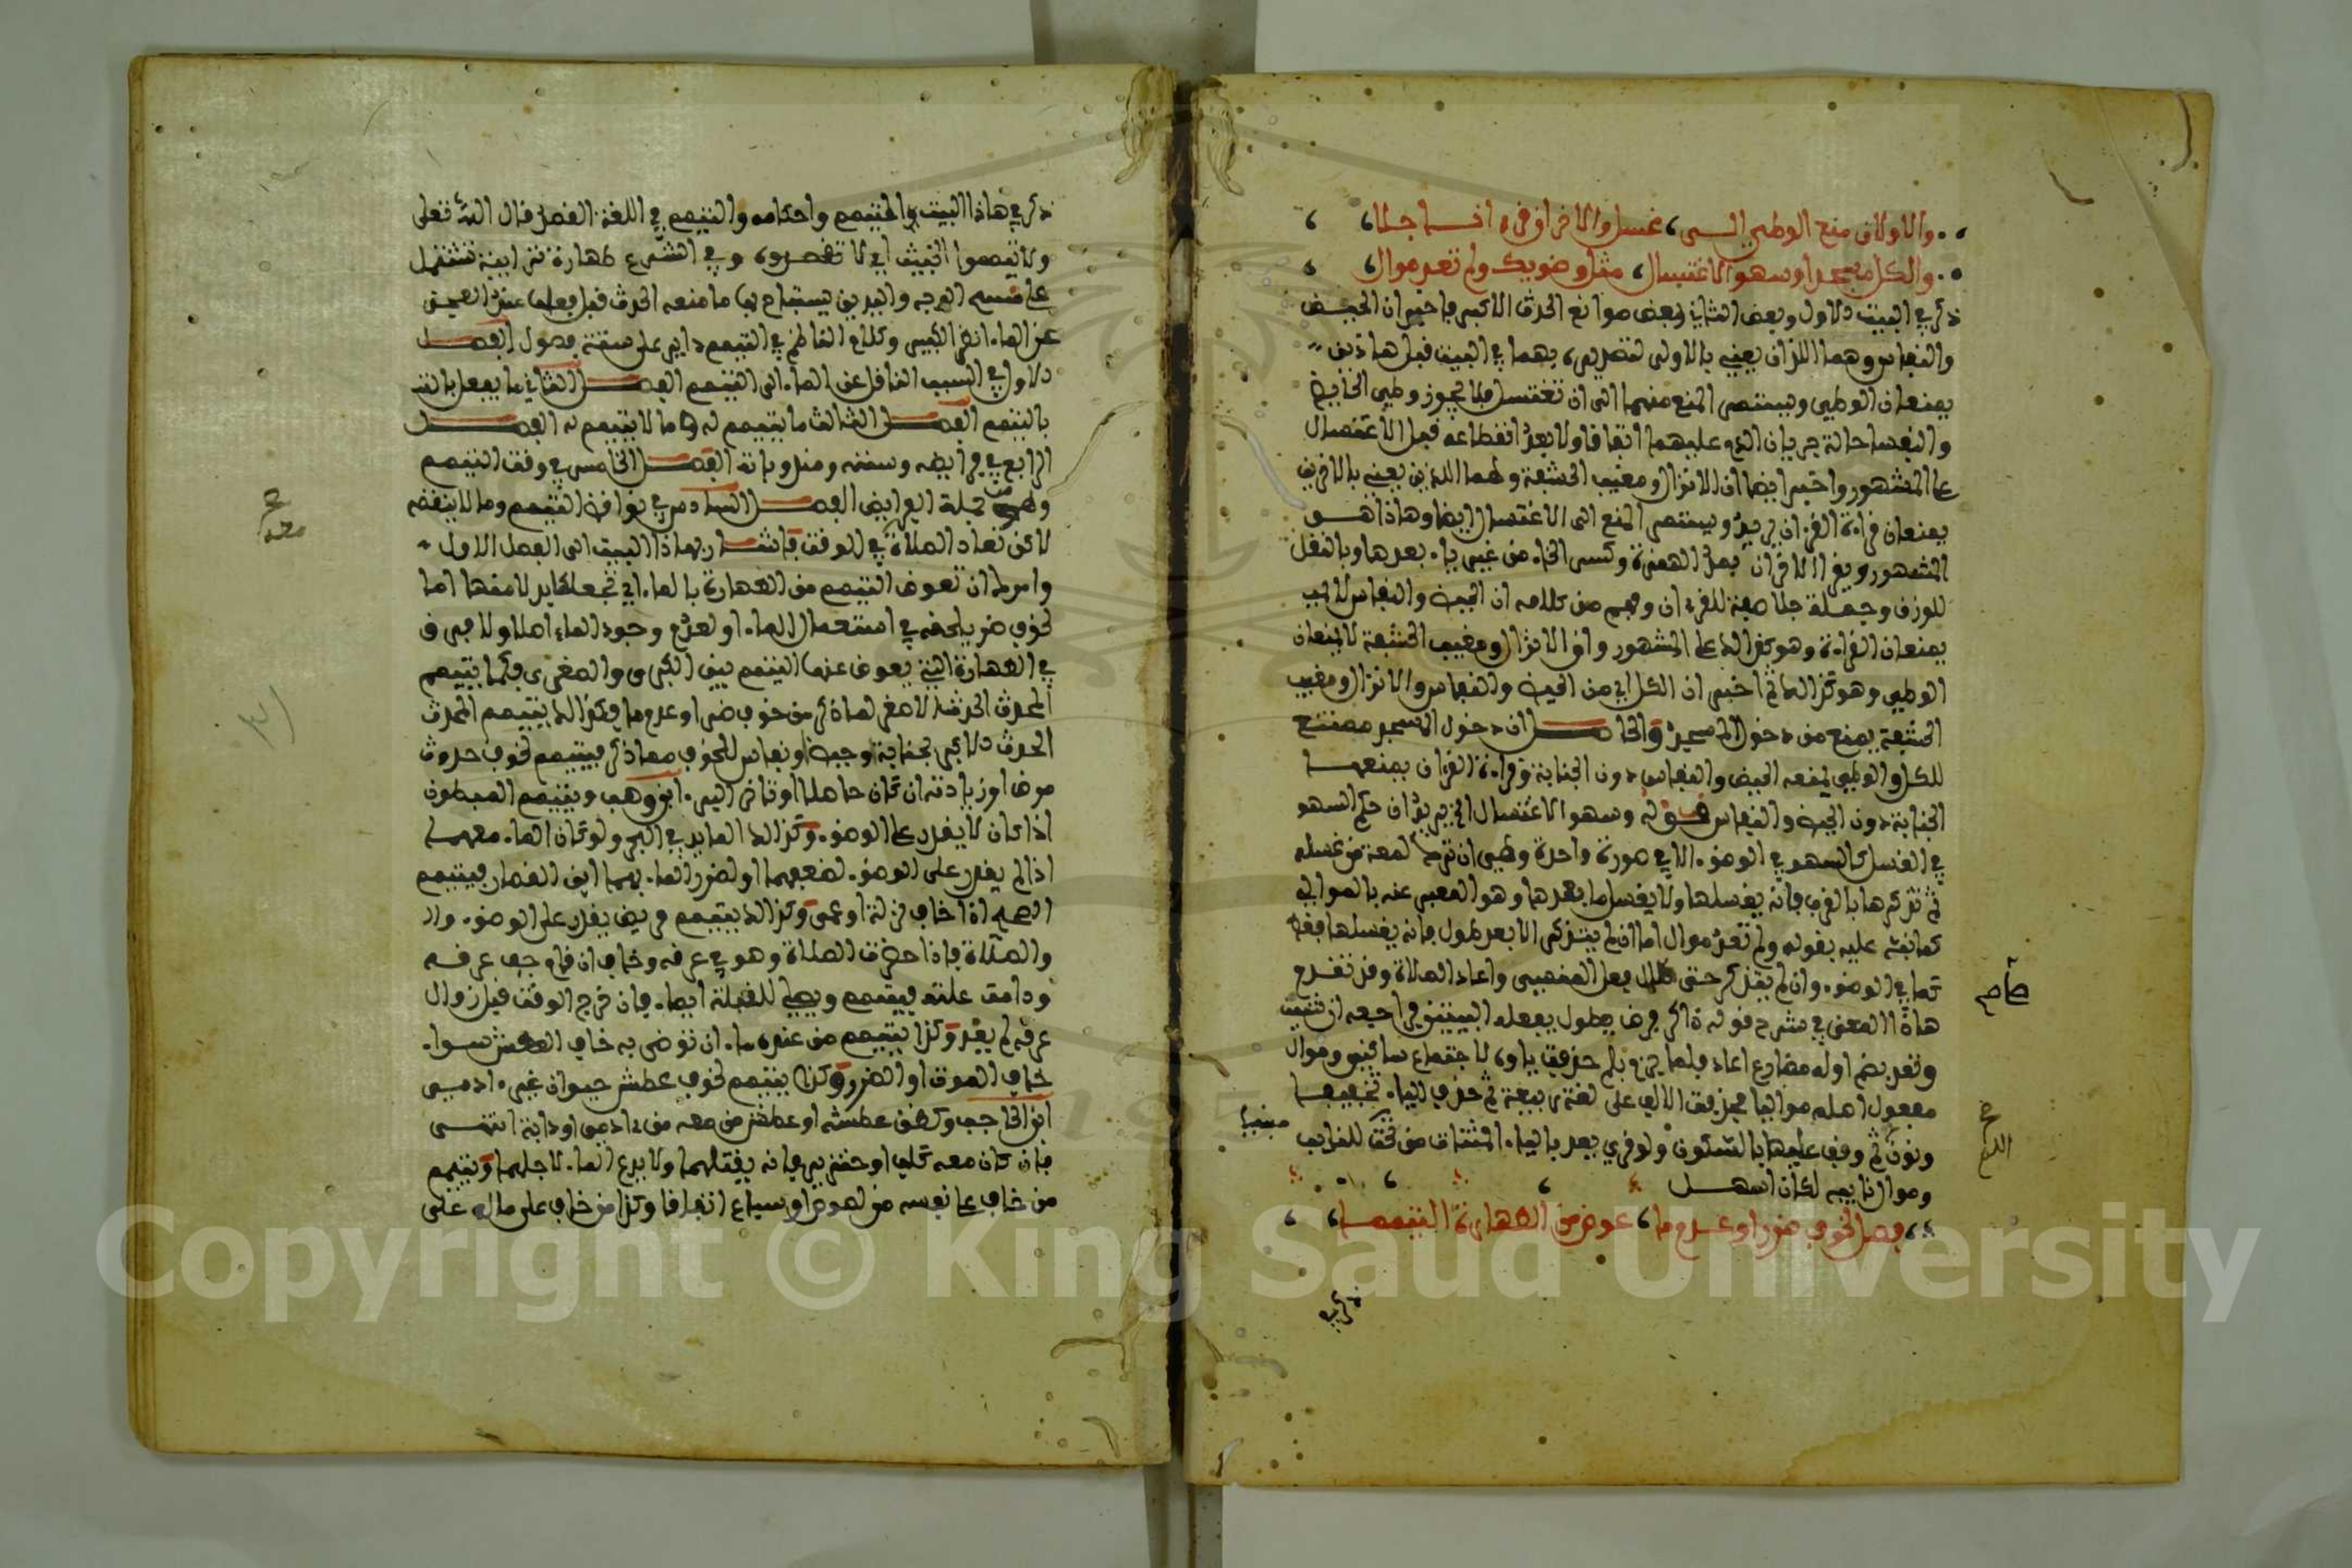 والاولان منع الوطء الى غسل والاخران قرءانا جلا
والكل مسجدا وسهو الاغتسال مثل وضوئك ولم تعد موال
ذكر في البيت الاول وبعض الثاني بعض موانع الحدث الاكبر فاخبر ان الحيض
والنفاس وهما اللذان يعني بالاولان لتصديره بهما في البيت قبل هاذين
يمنعان الوطء ويستمر المنع منهما الى ان تغتسل فلا يجوز وطء الحائض
والنفساء حالة جريان الدم عليهما اتفاقا ولا بعد انقطاعه قبل الاغتسال
على المشهور واخبر ايضا ان الانزال ومغيب الحشفة وهما اللذين يعني بالاخرين
يمنعان قراءة القرءان يريد ويستمر المنع الى الاغتسال ايضا وهاذا هو
المشهور ويقرا الاخران بنقل الهمزة وكسر الخاء من غير ياء بعدها وبالنقل
للوزن وجملة جلا صفة للقرءان وفهم من كلامه ان الحيض والنفاس لا
يمنعان القراءة وهو كذالك على المشهور وان الانزال ومغيب الحشفة لا يمنعان
الوطء وهو كذالك ثم اخبر ان الكل اي من الحيض والنفاس والانزال ومغيب
الحشفة يمنع من دخول المسجد والحاصل ان دخول المسجد ممتنع
للكل والوطء يمنعه الحيض والنفاس دون الجنابة وقراءة القرءان يمنعها
الجنابة دون الحيض والنفاس قوله وسهو الاغتسال الخ يريد ان حكم السهو
في الغسل كالسهو في الوضوء الا في صورة واحدة وهي ان ترك لمعة من غسله
ثم تذكرها بالقرب فانه يغسلها ولا يغسل ما بعدها وهو المعبر عنه بالموالي
كما نبه عليه بقوله ولم تعد موال اما ان لم يتذكر الا بعد طول فانه يغسلها فقط
كما في الوضوء وان لم يتذكر حتى صلى فعل واعاد الصلاة وقد تقدم
هاذا المعنى في شرح قوله ذاكر فرضه بطول يفعله البيتين فراجعه ان شئت
وتعد بضم اوله مضارع اعاد فلما جزم بلم حذفت ياوه لاجتماع ساكنين وموال
مفعول اصله مواليا فحذفت الالف على لغة ربيعة ثم حذف الياء تخفيفا
ونون ثم وقف عليها بالسكون ولو قرئ يعد بالياء
وموال نائبه لكان اسهل
فصل لخوف ضر او عدم ما عوض من الطهارة التيمما
ذكر في
صام
ذكر في هاذا البيت والتيمم واحكامه والتيمم في اللغة القصد قال الله تعلى
ولا تيمموا الخبيث اي لا تقصدوه وفي الشرع طهارة ترابية تشتمل
على مسح الوجه واليدين يستباح بها ما منعه الحدث قبل فعلها عند العجز
عن الماء انظر الكبير وكلام الناظم في التيمم داير على ستة فصول الفصل
الاول في السبب الناقل عن الماء الى التيمم الفصل الثاني ما يفعل
بالتيمم الفصل الثالث ما يتيمم له وما لا يتيمم له الفصل
الرابع في فرايضه وسننه ومندوباته الفصل الخامس في وقت التيمم
وهو من جملة الفرايض الفصل السادس في نواقض التيمم وما لا ينقضه
لاكن تعاد الصلاة في الوقت فاشار بهاذا البيت الى الفصل الاول
وامر ان تعوض التيمم من الطهارة بالماء اي تجعله بدلا منها اما
لخوف ضر يلحقه في استعمال الماء او لعدم وجود الماء اصلا ولا فرق
في الطهارة التي يعوض عنها التيمم بين الكبرى والصغرى فكما يتيمم
المحدث الحدث الاصغر لما ذكر من خوف ضر او عدم ما فكذالك يتيمم المحدث
الحدث الاكبر لجنابة او حيض او نفاس للخوف مما ذكر فيتيمم لخوف حدوث
مرض او زيادته او تاخر البرء ابن وهب ويتيمم المبطون
اذا كان لا يقدر على الوضوء وكذالك المايد في البحر ولو كان الماء معهما
اذا لم يقدر على الوضوء لضعفهما او لضرر الماء بهما ابن القصار فيتيمم
اذا خاف نزلة او حمى وكذالك يتيمم مريض يقدر على الوضوء
والصلاة فاذا حضرت الصلاة وهو في عرقه وخاف ان قام جف عرقه
ودامت علته فيتيمم ويصلي للقبلة ايماء فان خرج الوقت قبل زوال
عرقه لم يعد وكذا يتيمم من عنده ماء ان توضى به خاف العطش سواء
خاف الموت او الضرر وكذا يتيمم لخوف عطش حيوان غيره ادمي
ابن الحاجب وكظن عطشه او عطش من معه من ءادمي او دابة انتهى
فان كان معه كلب او خنزير فانه يقتلهما ولا يدع الماء لاجلهما ويتيمم
من خاف على نفسه من لصوص او سباع اتفاقا وكذا من خاف على ماله على
Copyright © King Saud University